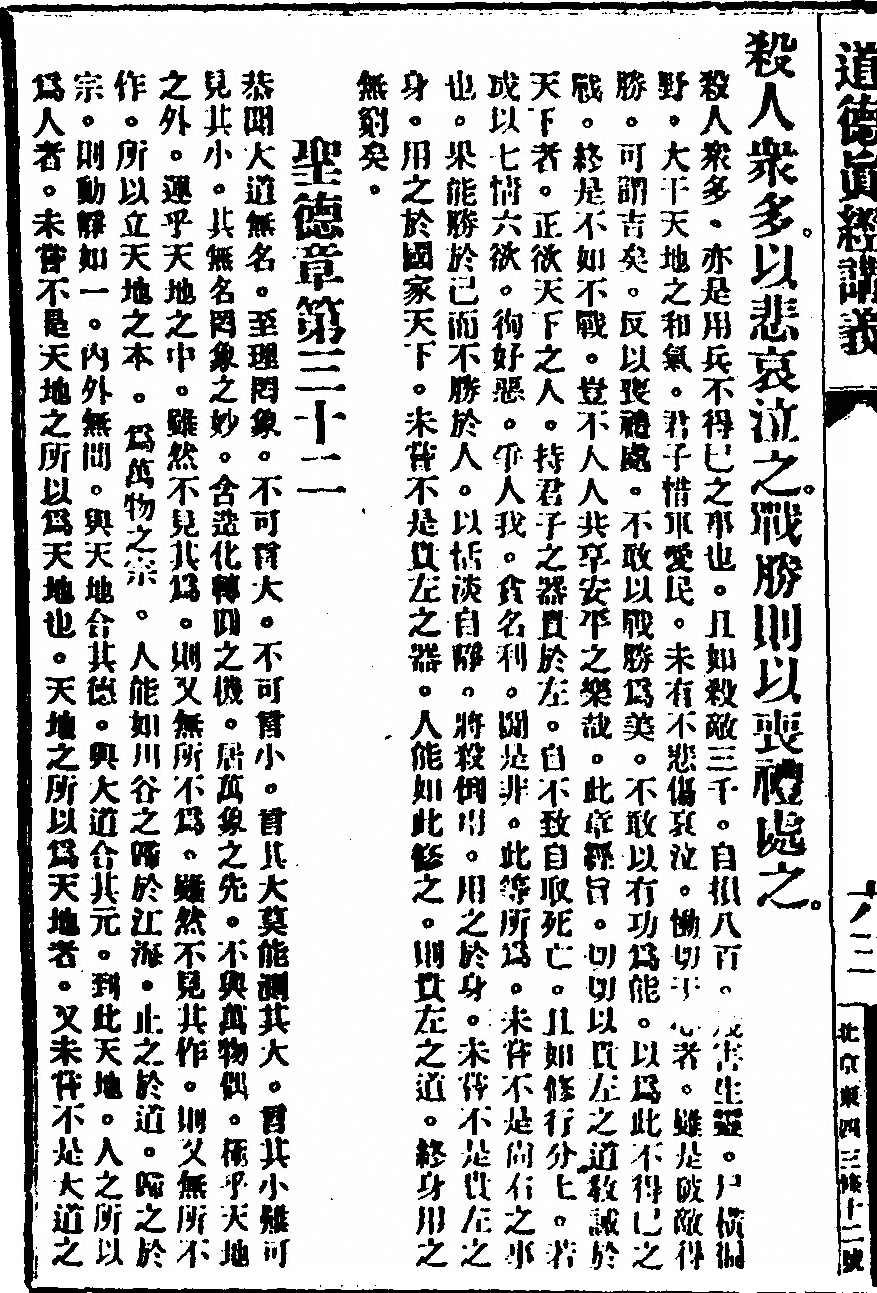 道德眞經講義
六三
北京東四三條十二號
殺人衆多。以悲哀泣之。戰勝則以喪禮處之。
殺人衆多。亦是用兵不得已之事也。且如殺敵三千。自損八百。害生靈。尸橫
野。大干天地之和氣。君子惜軍愛民。未有不悲傷哀泣。慟切于心者。雖是破敵得
勝。可謂吉矣。反以喪禮處。不敢以戰勝爲美。不敢以有功爲能。以爲此不得已之
戰。終是不如不戰。豈不人人共享安平之樂哉。此章經旨。切切以貴左之道敎誡於
天下者。正欲天下之人。持君子之器貴於左。自不致自取死亡。且如修行分上。若
或以七情六欲。徇好惡。爭人我。貪名利。鬬是非。此等所爲。未嘗不是尙右之事
也。果能勝於己而不勝於人。以恬淡自靜。將殺倒用。用之於身。未嘗不是貴左之
身。用之於國家天下。未嘗不是貴左之器。人能如此修之。則貴左之道。終身用之
無窮矣。
聖德章第三十二
恭聞大道無名。至理罔象。不可言大。不可言小。言其大莫能測其大。言其小難可
見其小。其無名罔象之妙。含造化轉回之機。居萬象之先。不與萬物偶。極乎天地
之外。運乎天地之中。雖然不見其爲。則又無所不爲。雖然不見其作。則又無所不
作。所以立天地之本。爲萬物之宗。人能如川谷之歸於江海。止之於道。歸之於
宗。則動靜如一。內外無間。與天地合其德。與大道合其元。到此天地。人之所以
爲人者。未嘗不是天地之所以爲天地也。天地之所以爲天地者。又未嘗不是大道之